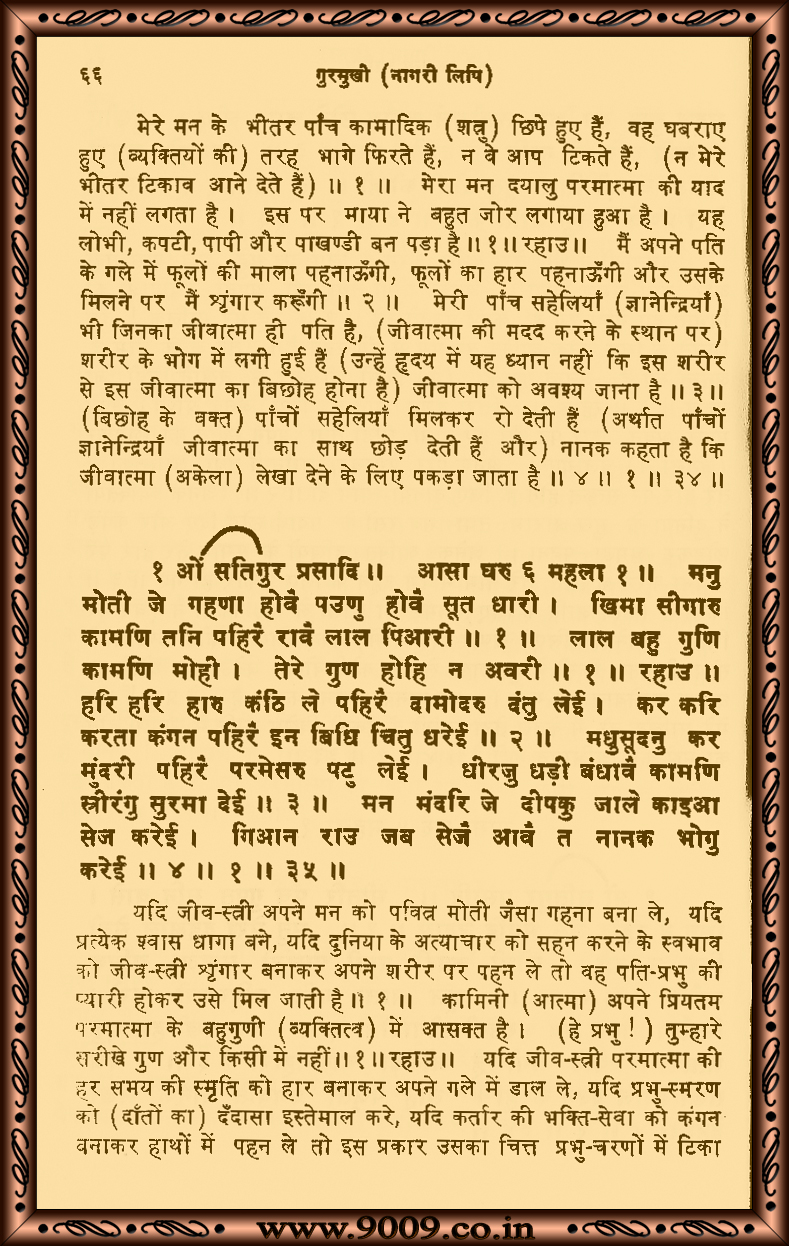 ६६ गुरमुखी (नागरी लिपि)
मेरे मन के भीतर पाँच कामादिक (शत्रु) छिपे हुए हैं, वह घबराए
हुए (व्यक्तियों की) तरह भागे फिरते हैं, न वे आप टिकते हैं, (न मेरे
भीतर टिकाव आने देते हैं) ॥ १ ॥ मेरा मन दयालु परमात्मा की याद
में नहीं लगता है । इस पर माया ने बहुत जोर लगाया हुआ है । यह
लोभी, कपटी, पापी और पाखण्डी बन पड़ा है ॥ १ ॥ रहाउ ॥ मैं अपने पति
के गले में फूलों की माला पहनाऊँगी, फूलों का हार पहनाऊँगी और उसके
मिलने पर मैं शृंगार करूँगी ॥ २ ॥ मेरी पाँच सहेलियाँ (ज्ञानेन्द्रियाँ)
भी जिनका जीवात्मा ही पति है, (जीवात्मा की मदद करने के स्थान पर)
शरीर के भोग में लगी हुई हैं (उन्हें हृदय में यह ध्यान नहीं कि इस शरीर
से इस जीवात्मा का बिछोह होना है) जीवात्मा को अवश्य जाना है ॥ ३ ॥
(बिछोह के वक्त) पाँचों सहेलियाँ मिलकर रो देती हैं (अर्थात पाँचों
ज्ञानेन्द्रियाँ जीवात्मा का साथ छोड़ देती हैं और) नानक कहता है कि
जीवात्मा (अकेला) लेखा देने के लिए पकड़ा जाता है ॥ ४ ॥ १ ॥ ३४ ॥
१ ओं सतिगुर प्रसादि ॥ आसा घरु ६ महला १ ॥ मनु
मोती जे गहणा होवै पउणु होवै सूत धारी । खिमा सीगारु
कामणि तनि पहिरै रावै लाल पिआरी ॥ १ ॥ लाल बहु गुणि
कामणि मोही । तेरे गुण होहि न अवरी ॥ १ ॥ रहाउ ॥
हरि हरि हारु कंठि ले पहिरै दामोदरु दंतु लेई । कर करि
करता कंगन पहिरै इन बिधि चितु धरेई ॥ २ ॥ मधुसूदनु कर
मुंदरी पहिरै परमेसरु पटु लेई । धीरजु धड़ी बंधावै कामणि
स्रीरंगु सुरमा देई ॥ ३ ॥ मन मंदरि जे दीपकु जाले काइआ
सेज करेई । गिआन राउ जब सेजै आवै त नानक भोगु
करेई ॥ ४ ॥ १ ॥ ३५ ॥
यदि जीव-स्त्री अपने मन को पवित्र मोती जैसा गहना बना ले, यदि
प्रत्येक श्वास धागा बने, यदि दुनिया के अत्याचार को सहन करने के स्वभाव
को जीव-स्त्री शृंगार बनाकर अपने शरीर पर पहन ले तो वह पति-प्रभु की
प्यारी होकर उसे मिल जाती है ॥ १ ॥ कामिनी (आत्मा) अपने प्रियतम
परमात्मा के बहुगुणी (व्यक्तित्व) में आसक्त है । (हे प्रभु ! ) तुम्हारे
सरीखे गुण और किसी में नहीं ॥ १ ॥ रहाउ ॥ यदि जीव-स्त्री परमात्मा की
हर समय की स्मृति को हार बनाकर अपने गले में डाल ले, यदि प्रभु-स्मरण
को (दाँतों का) दँदासा इस्तेमाल करे, यदि कर्तार की भक्ति-सेवा को कंगन
बनाकर हाथों में पहन ले तो इस प्रकार उसका चित्त प्रभु-चरणों में टिका
www.9009.co.in